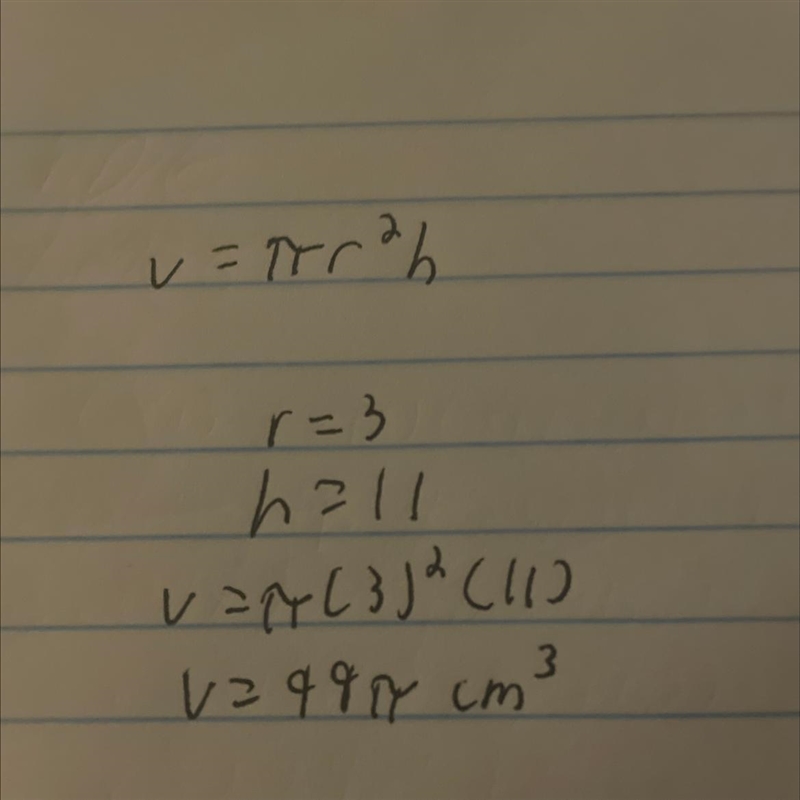 v = πr²h
r = 3
h = 11
v = π(3)²(11)
v = 99π cm³